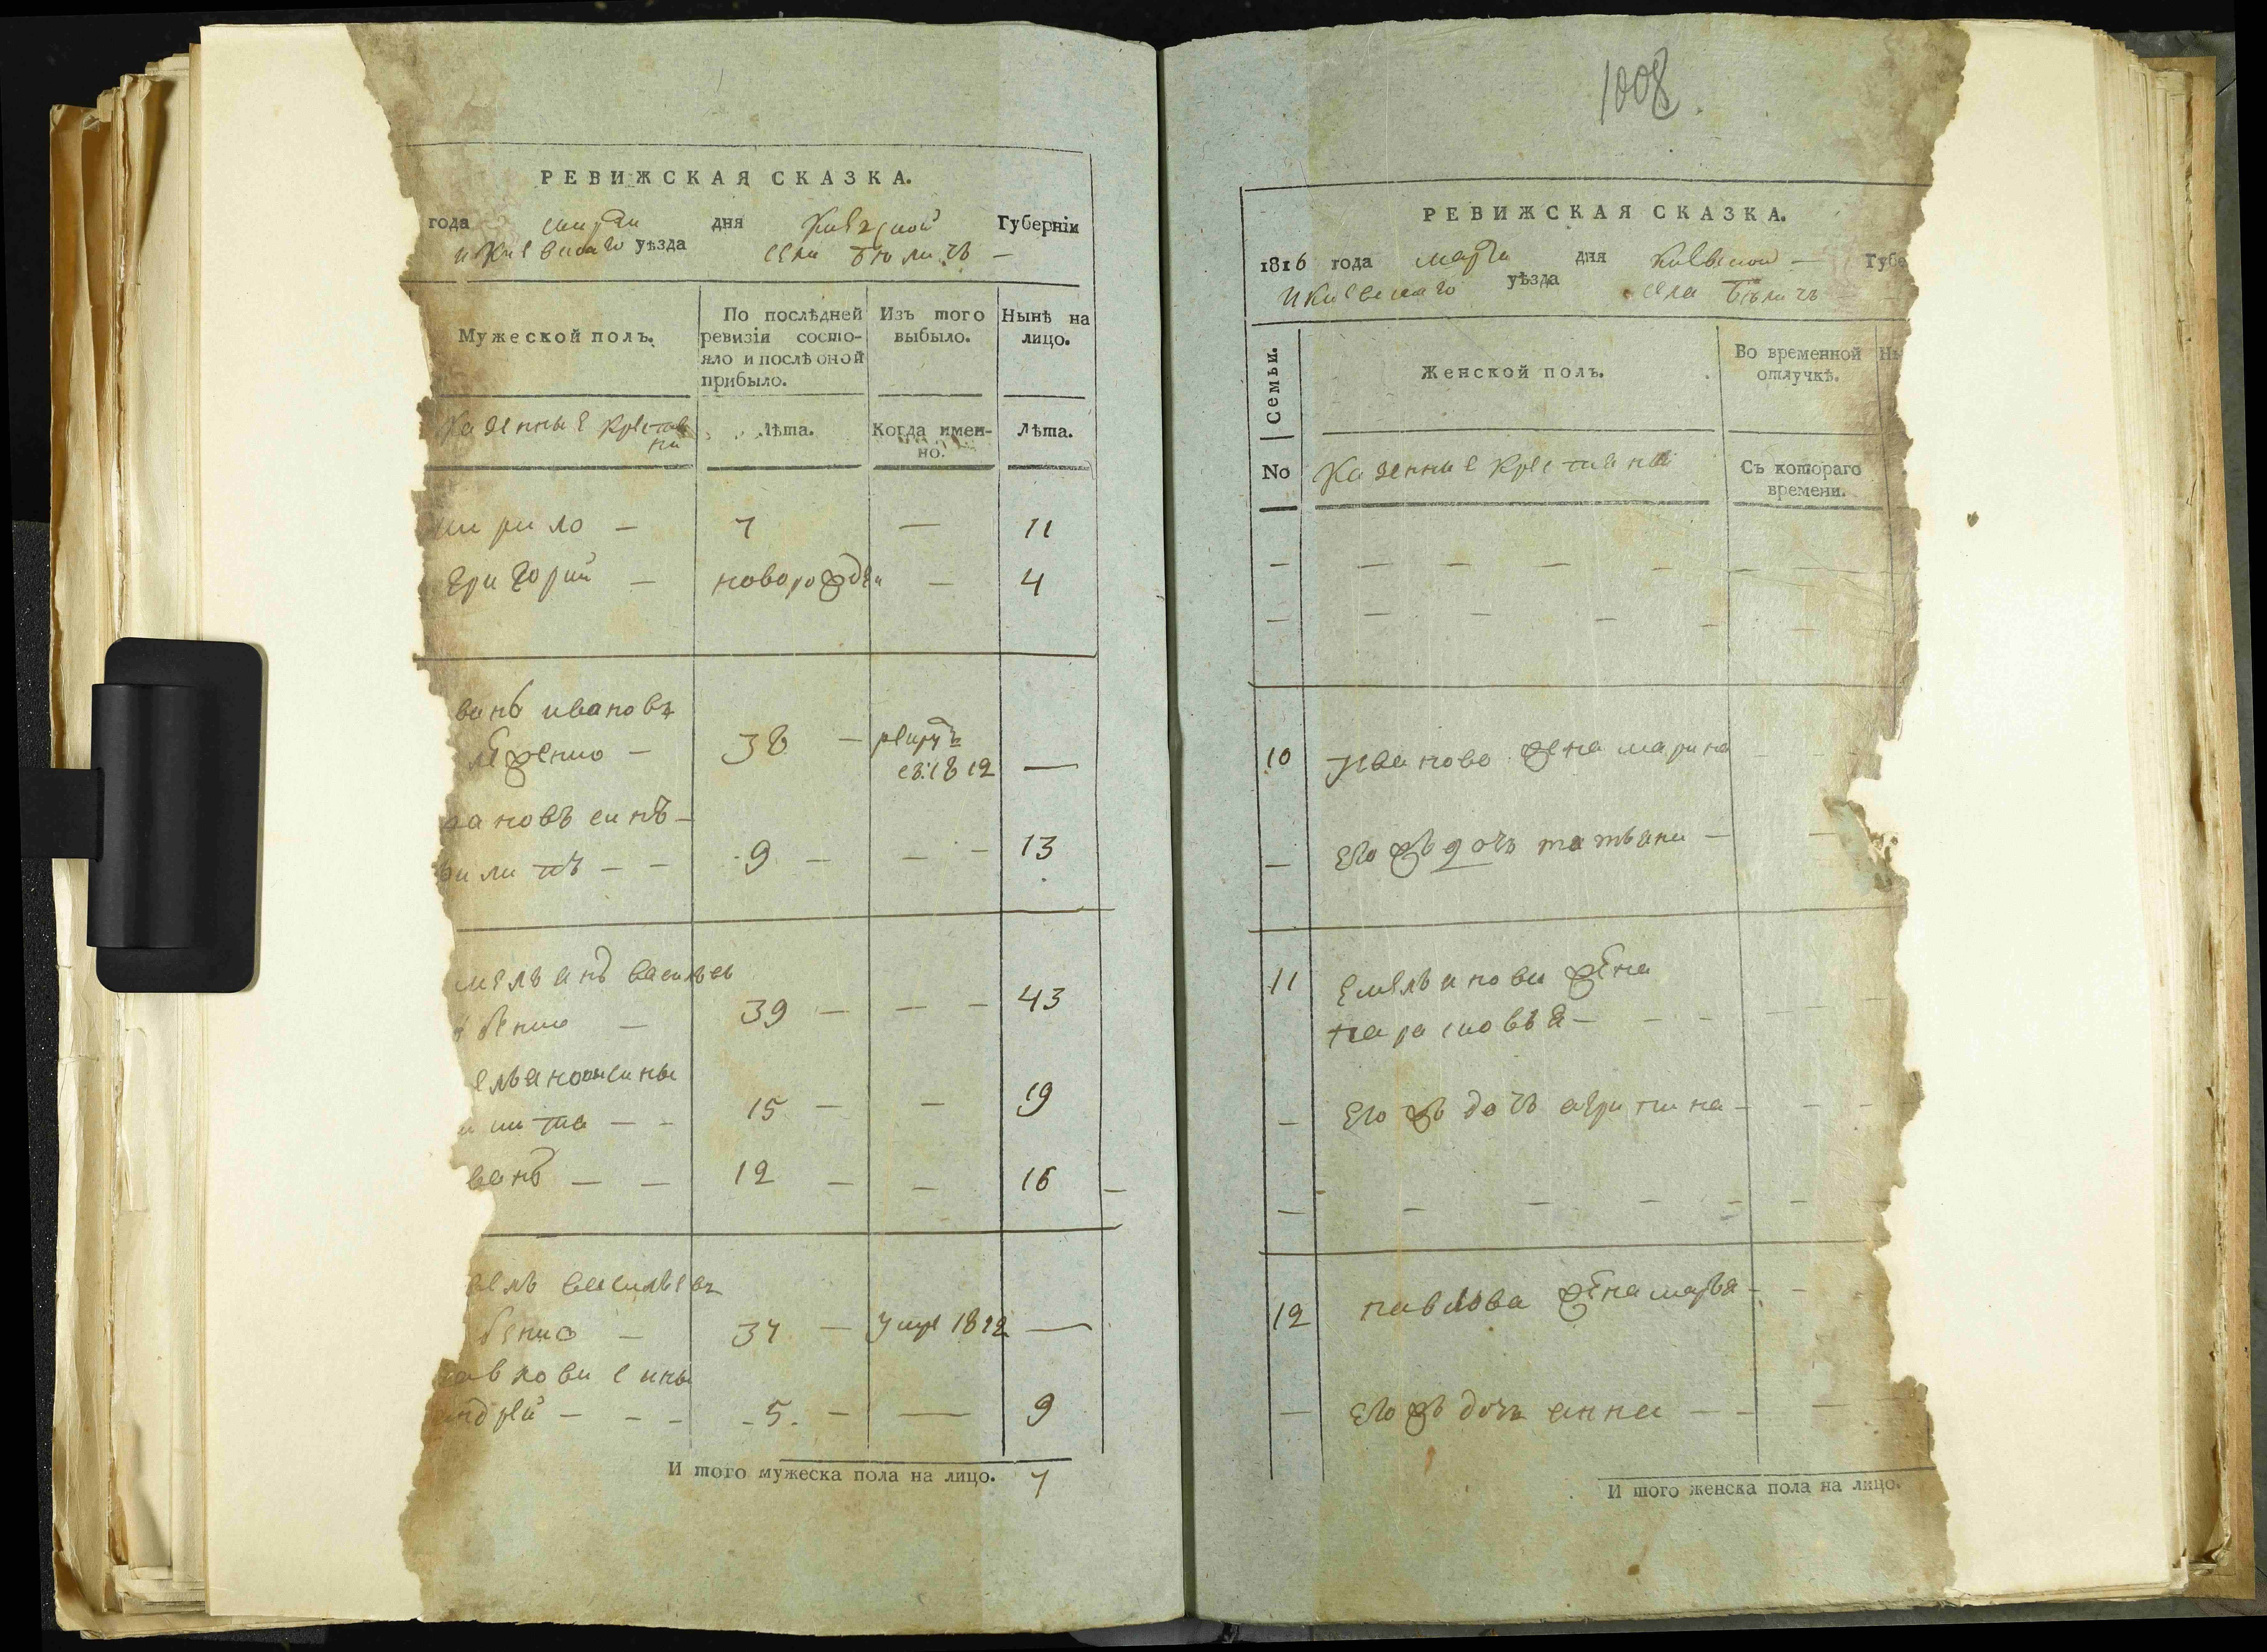 РЕВИЖСКАЯ СКАЗКА.
года марта дня Киевской Губерніи
и Киевскаго уѣзда села Бѣличъ —
Мужеской полъ.
По послѣдней ревизіи состо-
яло и послѣ оной
прибыло.
Изъ того
выбыло.
Нынѣ на
лицо.
Казенные крестья
ни
Лѣта.
Когда имен-
но.
Лѣта.
кирило — 7 — 11
григорий — новорожден — 4
ванъ ивановъ
38 — рекрутъ
въ 1812 —
вановъ синъ —
филипъ — — 9 — — — 13
мельянъ васильевъ
39 — — — 43
ельянови сины
икита — — 15 — — 19
ванъ — — 12 — — 16 —
велъ васильевъ
— 37 — умре 1812 —
павлови сины
андрей — — — 5. — — 9
И того мужеска пола на лицо. 7
1008.
РЕВИЖСКАЯ СКАЗКА.
1816 года марта дня Киевской — Губе
и Киевскаго уѣзда села Бѣличъ —
Семьи.
Женской полъ.
Во временной
отлучкѣ.
Ны
No
Казенние крестьяни
Съ котораго
времени.
10 Иванова жена марина
— Его жъ дочъ татьяна —
11 Емельянова жена
парасковья —
— Его жъ дочъ агрипина —
12 павлова жена марья —
— Его жъ дочъ анна — —
И того женска пола на лицо.